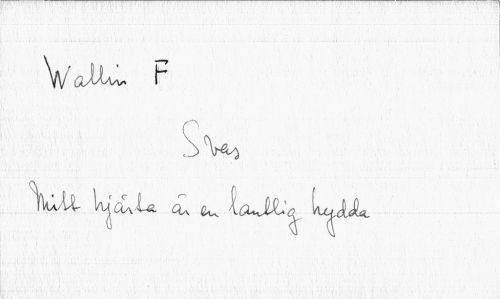 Wallin F
Svas
Mitt hjärta är en lantlig hydda